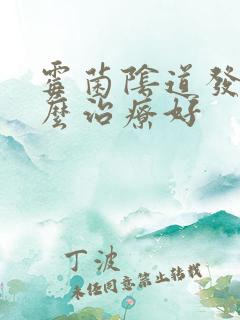 霉菌陰道發
麼治療好
丁波
未经同意禁止转载